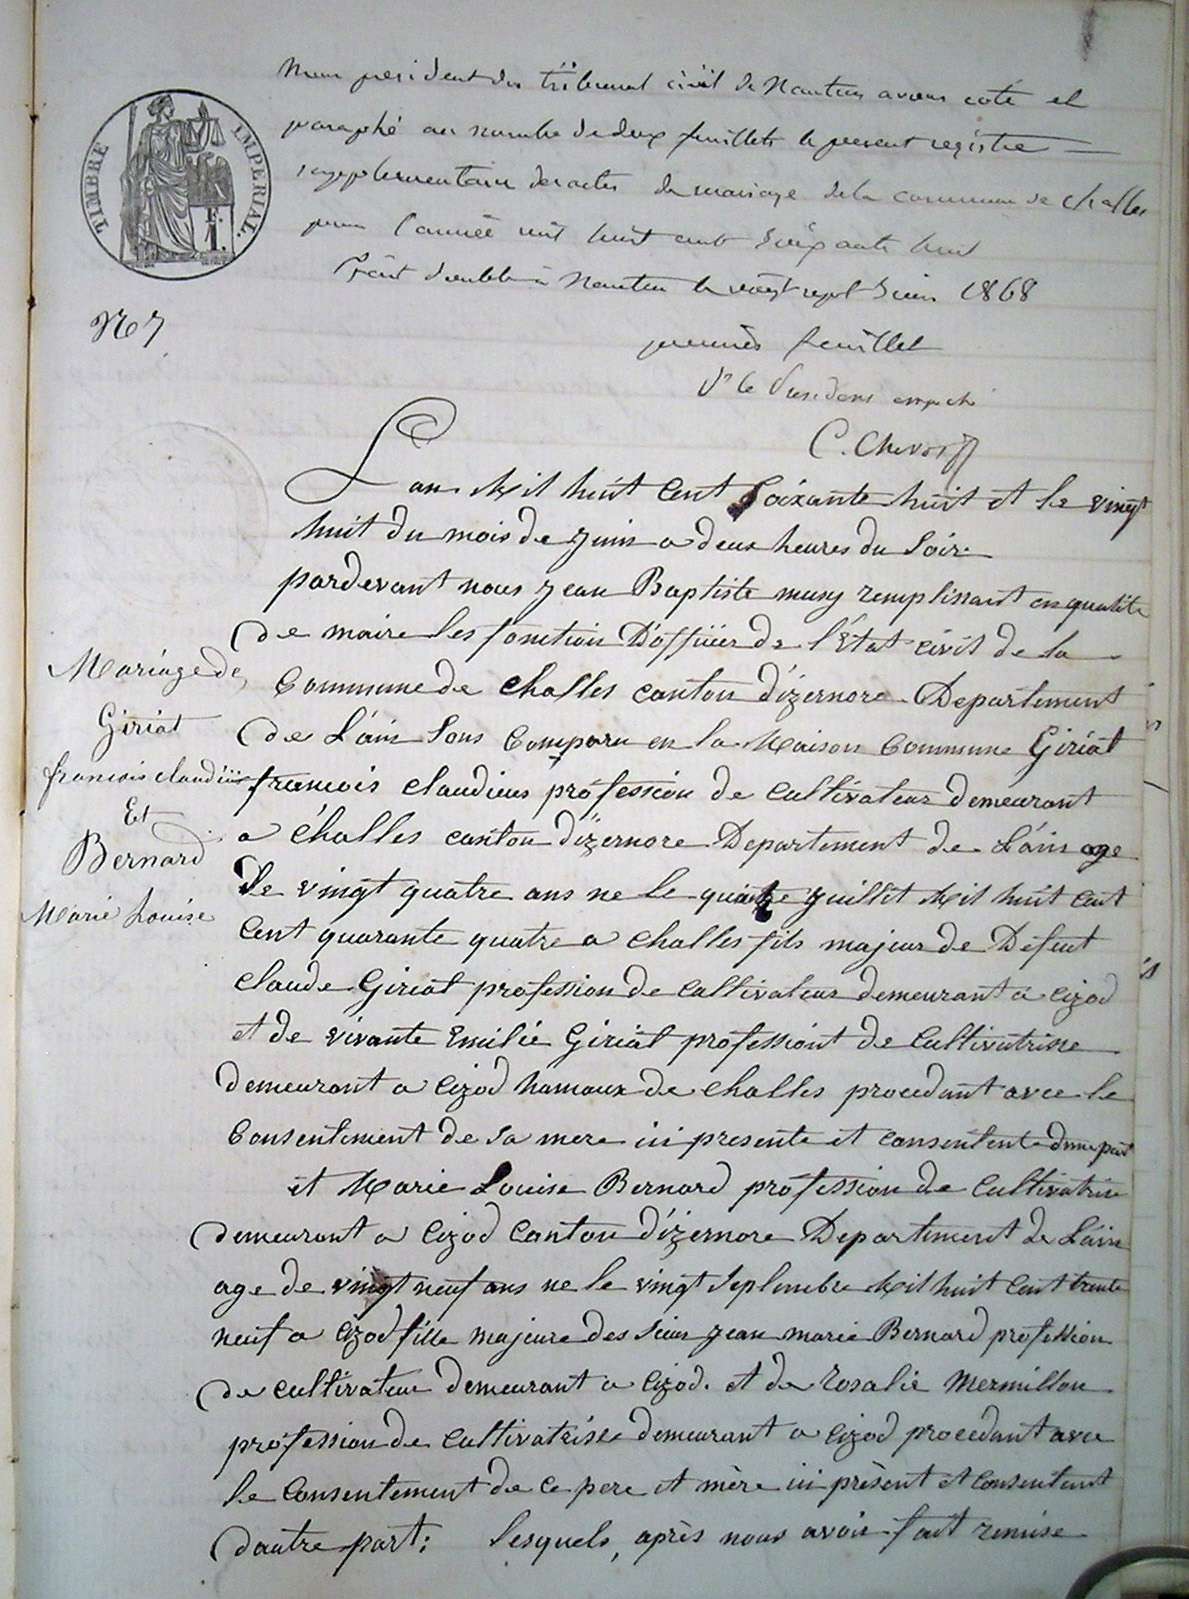 TIMBRE IMPERIAL.
Nous président du tribunal civil de Nantua avons coté et
paraphé au nombre de deux feuillets le present registre
supplementaire des actes de mariage de la commune de Challes
pour l'année mil huit cent soixante huit
Fait double à Nantua le vingt sept Juin 1868
premier feuillet
Pr le President empeché
N° 7
L'an Mil huit Cent Soixante huit et le vingt
huit du mois de juin a deux heures du Soir
pardevant nous jean Baptiste musy remplissant en qualité
de maire les fonction D'officier de l'État civil de la
Commune de Challes canton d'izernore Departement
de L'ain Sons Comparu en la Maison Commune Giriat
francois claudius profession de cultivateur demeurant
a challes canton d'izernore Departement de L'ain age
De vingt quatre ans ne le quatre juillet Mil huit cent
Cent quarante quatre a Challes fils majeur de Défeut
claude Giriat profession de Cultivateur demeurant a Cizod
et de vivante Emilie Giriat professiont de Cultivatrisse
demeurant a Cizod hamaux de challes procedant avec le
Consentement de sa mere ici presente et consentente dune part
et Marie Louise Bernard profession de Cultivatrise
demeurant a Cizod Canton d'izernore Departement de L'ain
age de vingt neuf ans ne le vingt Septembre Mil huit Cent trente
neuf a Cizod fille majeure des Sieur jean marie Bernard profession
de cultivateur demeurant a Cizod. et de rosalie Mermillon
profession de cultivatrise demeurant a Cizod procedant avec
le Consentement de ce pere et mère ici prèsent et consentent
dautre part: lesquels, après nous avoir fait remise
Mariage de
Giriat
francois claudius
Et
Bernard
Marie Louise